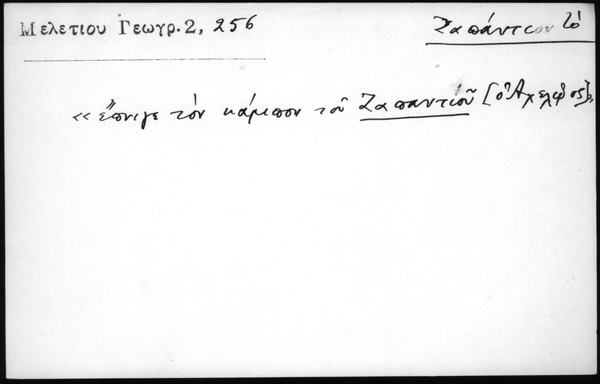 Μελετίου Γεωγρ.2, 256
Ζαπάντιον τὸ
«ἔπνιγε τὸν κάμπον τοῦ Ζαπαντιοῦ [ὁ Ἀχελῷος]»